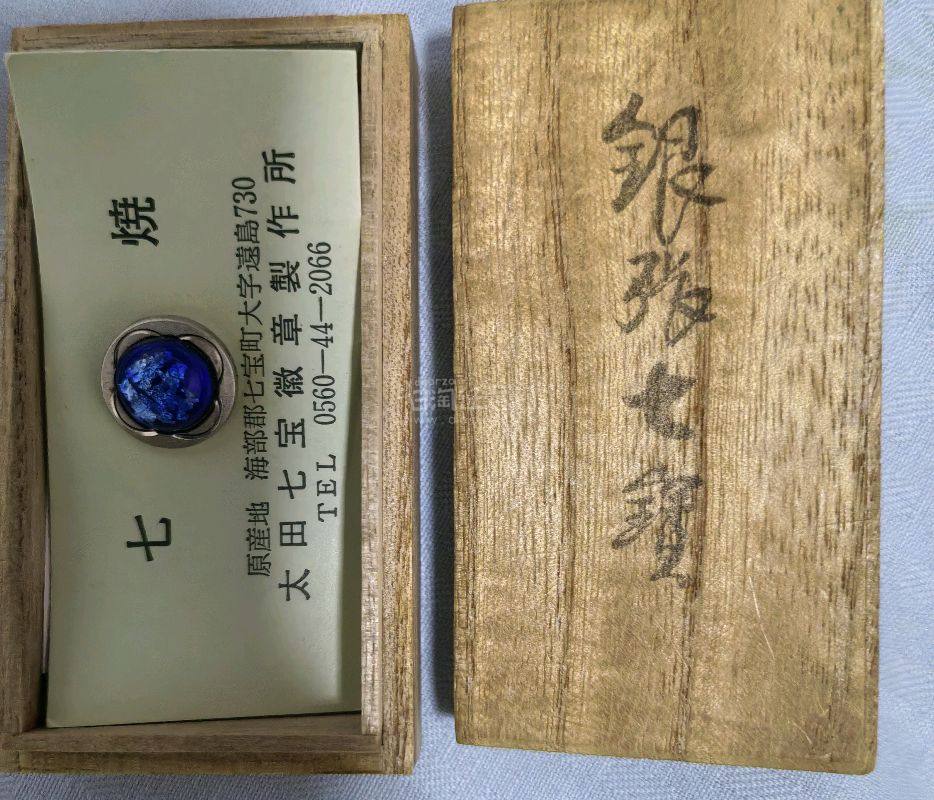 七 焼
原産地 海部郡七宝町大字遠島730
太田七宝徽章製作所
TEL 0560-44-2066
銀張七寶